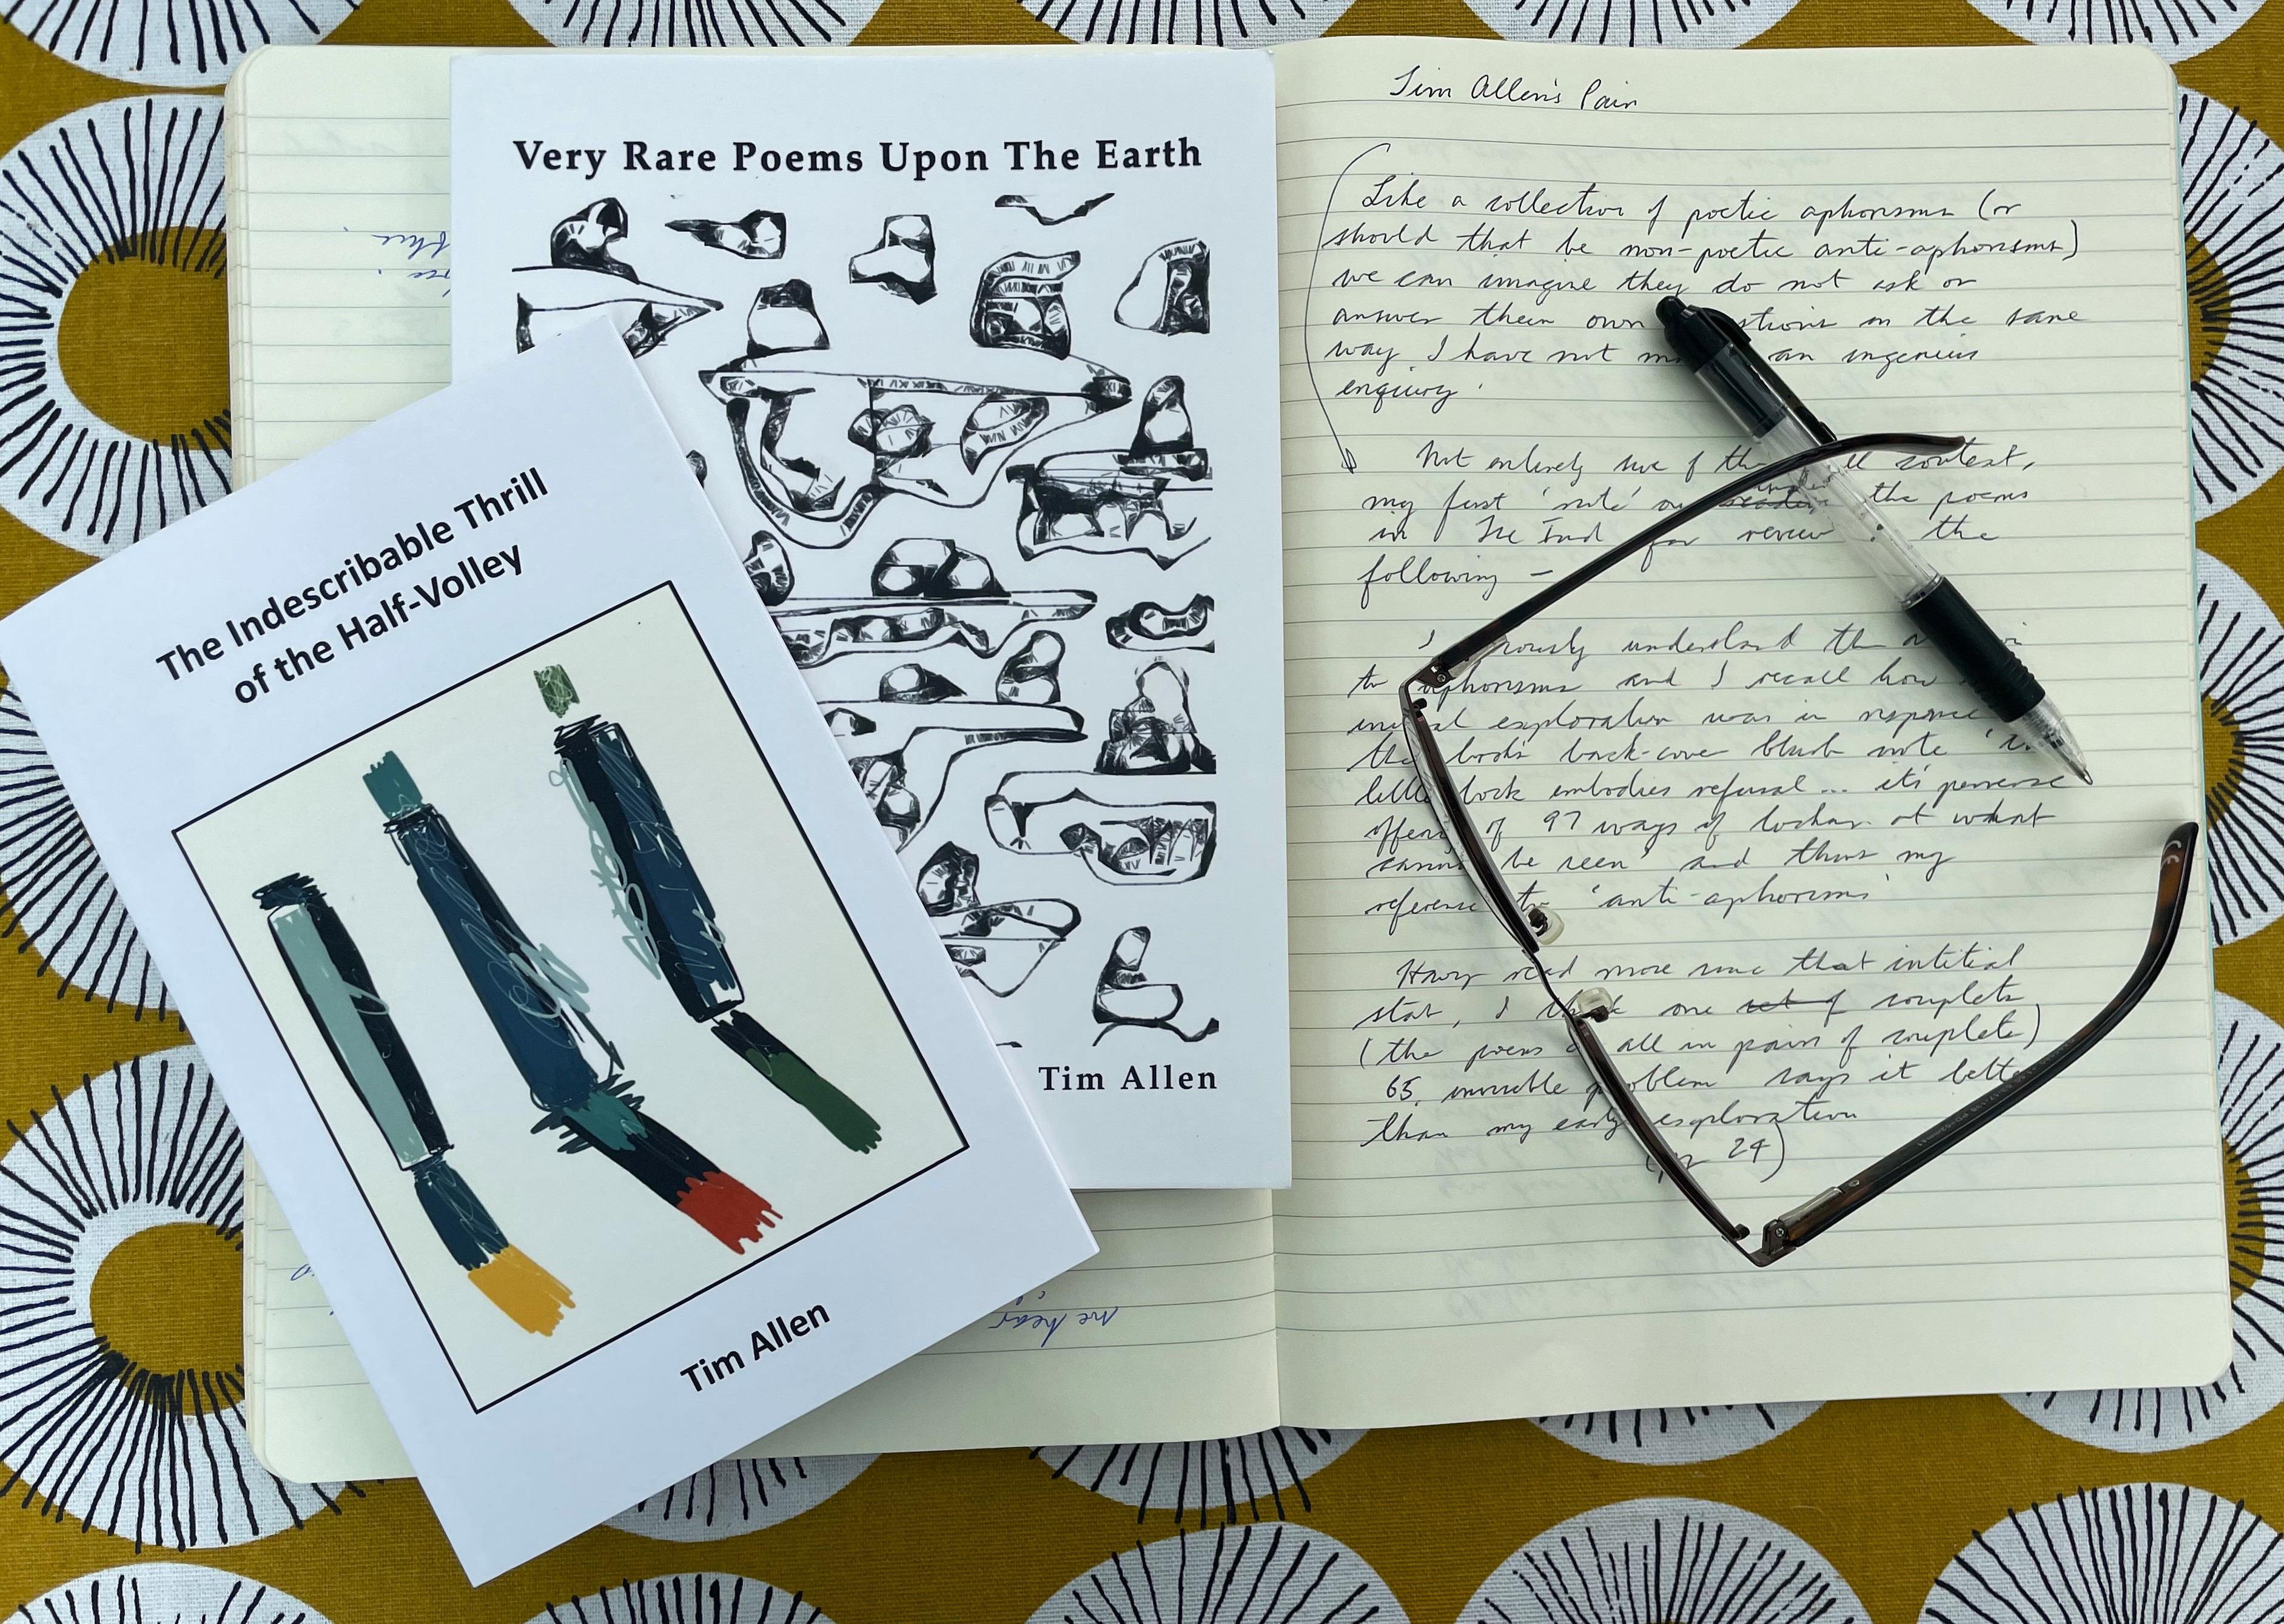 Very Rare Poems Upon The Earth
Tim Allen
The Indescribable Thrill
of the Half-Volley
Tim Allen
Tim Allen's Pair
Like a collection of poetic aphorisms (or
should that be non-poetic anti-aphorisms)
we can imagine they do not ask or
answer their own in the same
way I have not an ingenius
enquiry.
Not entirely sure of context,
my first 'note' on the poems
in The Ind for review the
following –
understand the
to aphorisms and I recall how
exploration was in response
the book's back-cover blurb note
little book embodies refusal ... its perverse
of 97 ways of looking at what
be seen' and thus my
reference to 'anti-aphorisms'
Having read more since that intitial
start, I think one set of couplets
(the poems all in pairs of couplets)
65. invisible problem says it better
than my early exploration
24)
we hear